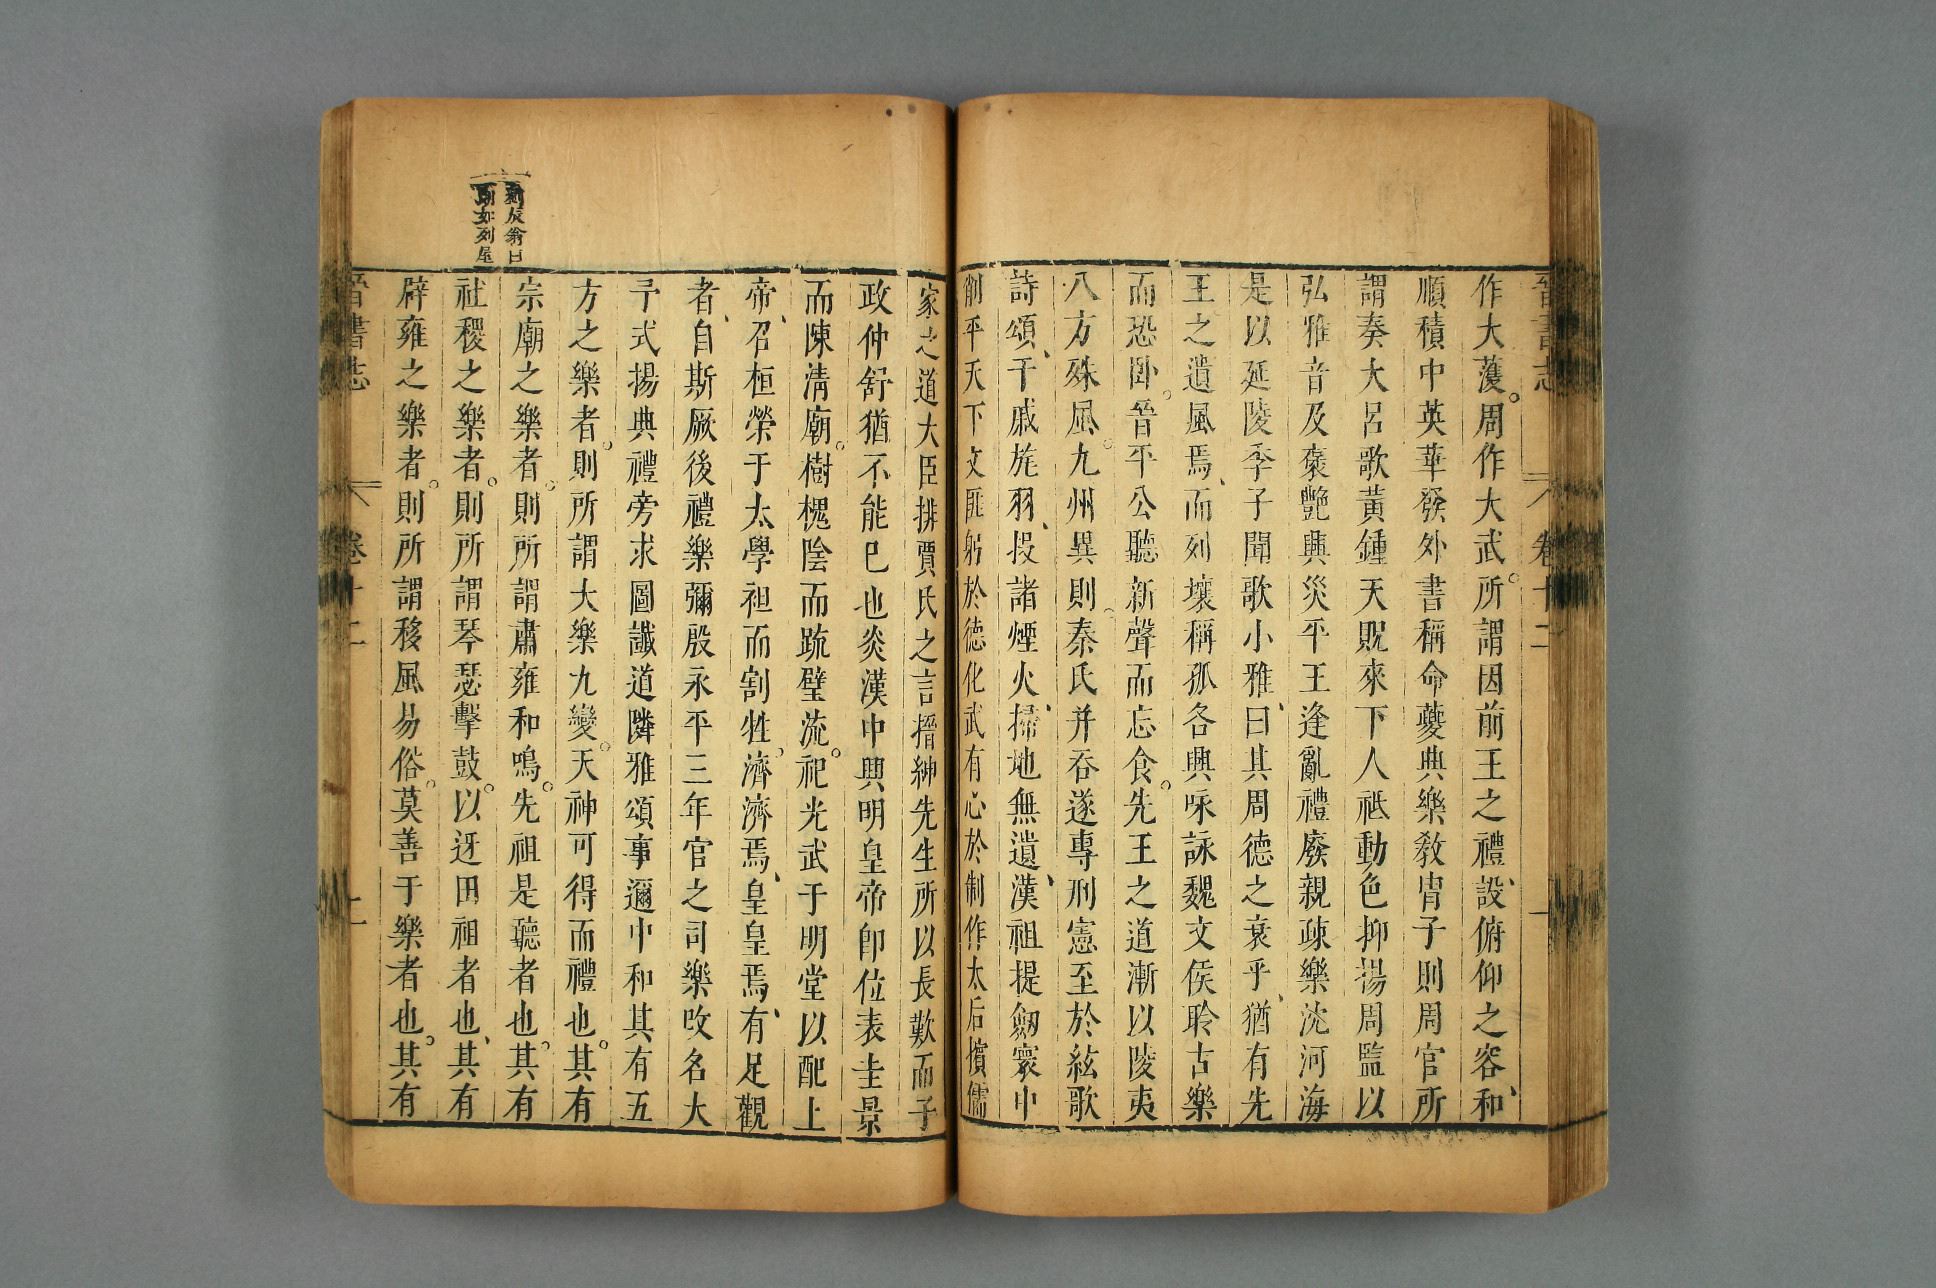 晉書志
卷十二
一
作大濩。周作大武。所謂因前王之禮、設俯仰之容、和
順積中英華發外書稱命夔典樂敎冑子則周官所
謂奏大呂歌黃鍾天貺來下人祗動色抑揚周監以
弘雅音及襃艷興災平王逢亂禮廢親疎樂沈河海
是以延陵季子聞歌小雅、曰其周德之衰乎、猶有先
王之遺風焉、而列壤稱孤各興咏詠魏文侯聆古樂
而恐卧。晉平公聽新聲而忘食。先王之道漸以陵夷
八方殊風。九州異則。秦氏并吞遂專刑憲至於絃歌
詩頌、干戚旄羽、投諸煙火、掃地無遺、漢祖提劒寰中
削平天下文匪躬於德化武有心於制作太后擯儒
家之道大臣排賈氏之言搢紳先生所以長歎而子
政仲舒猶不能巳也炎漢中興明皇帝卽位表圭景
而陳淸廟。樹槐陰而疏璧流。祀光武于明堂以配上
帝、召桓榮于太學袒而割牲、濟濟焉、皇皇焉、有足觀
者、自斯厥後禮樂彌殷永平三年官之司樂攺名大
予式揚典禮旁求圖讖道隣雅頌事邇中和其有五
方之樂者。則所謂大樂九變。天神可得而禮也。其有
宗廟之樂者。則所謂肅雍和鳴。先祖是聽者也。其有
社稷之樂者。則所謂琴瑟擊鼓。以迓田祖者也、其有
辟雍之樂者。則所謂移風易俗。莫善于樂者也。其有
劉辰翁曰
列屋
晉書志
卷十二
二